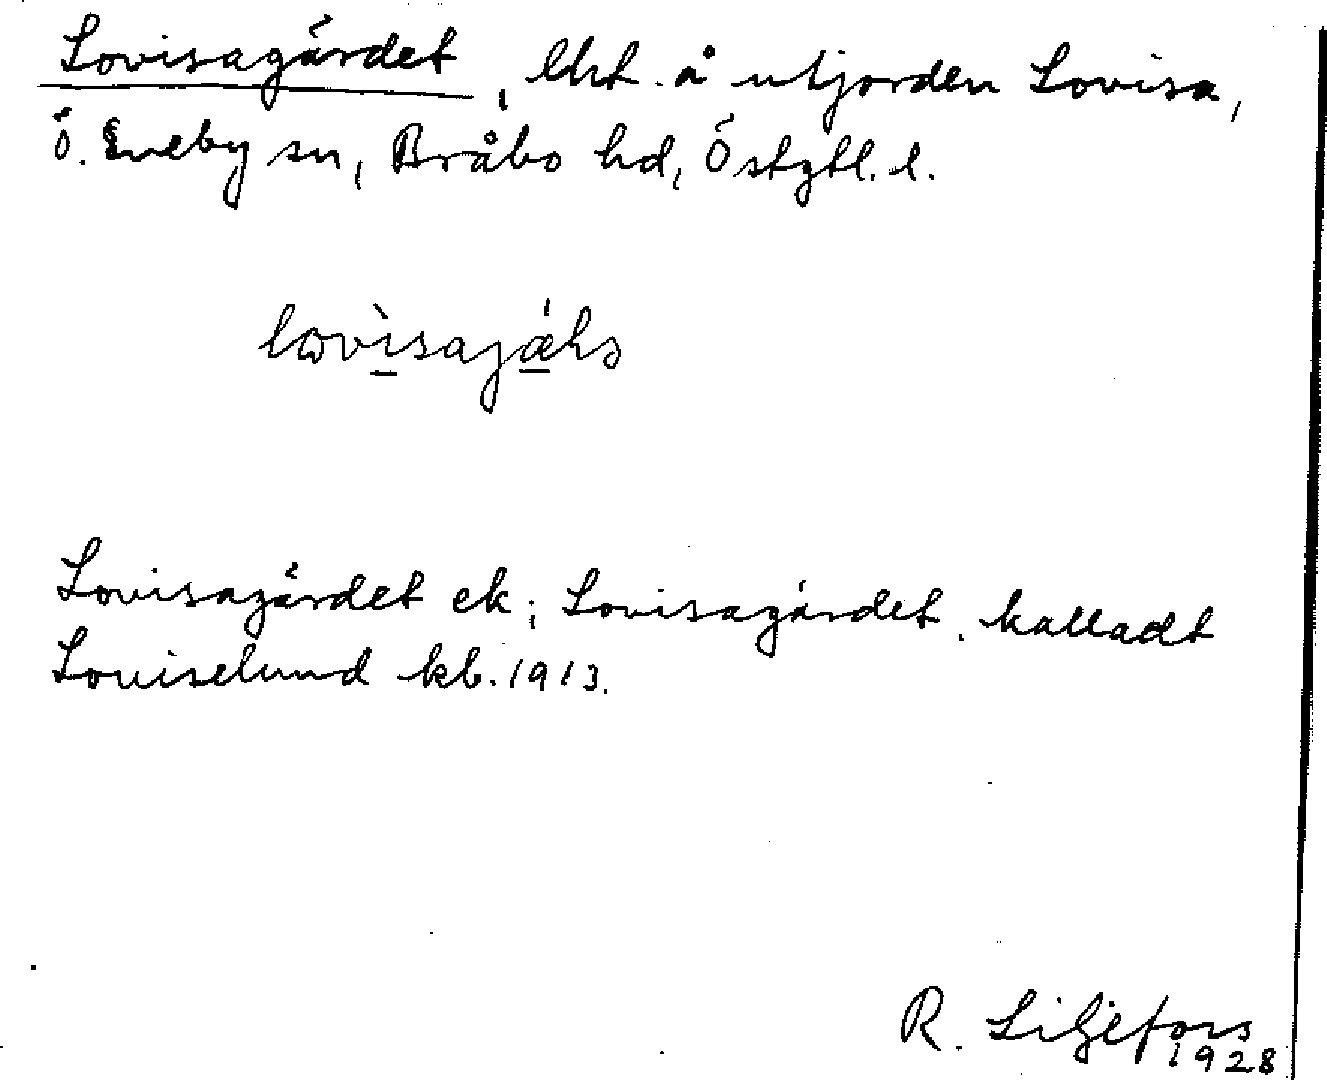 Lovisagärdet, lht. å utjorden Lovisa,
Ö. Eneby sn, Bråbo hd, Östgtl. l.
Lovisagärdet ek; Lovisagärdet. kalladt
Louiselund kb. 1913.
R. Liljefors
1928